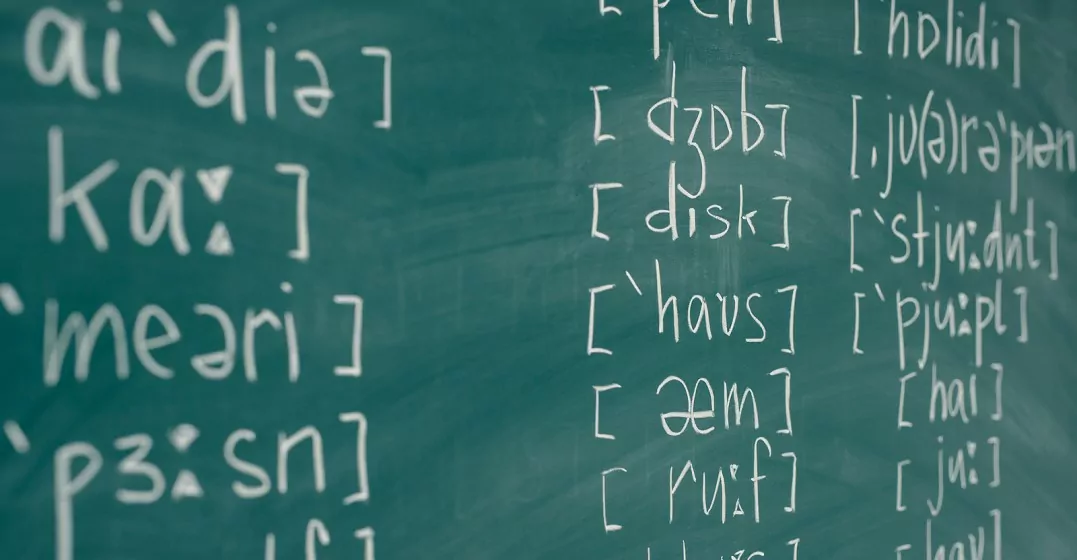 ai`diə]
kaː]
`meəri]
`pɜːsn]
[pen]
[dʒɒb]
[disk]
[`haʊs]
[æm]
[ruːf]
[`hɒlidi]
[ˌjʊ(ə)rə`pɪən
[`stjuːdnt]
[`pjuːpl]
[hai]
[juː]